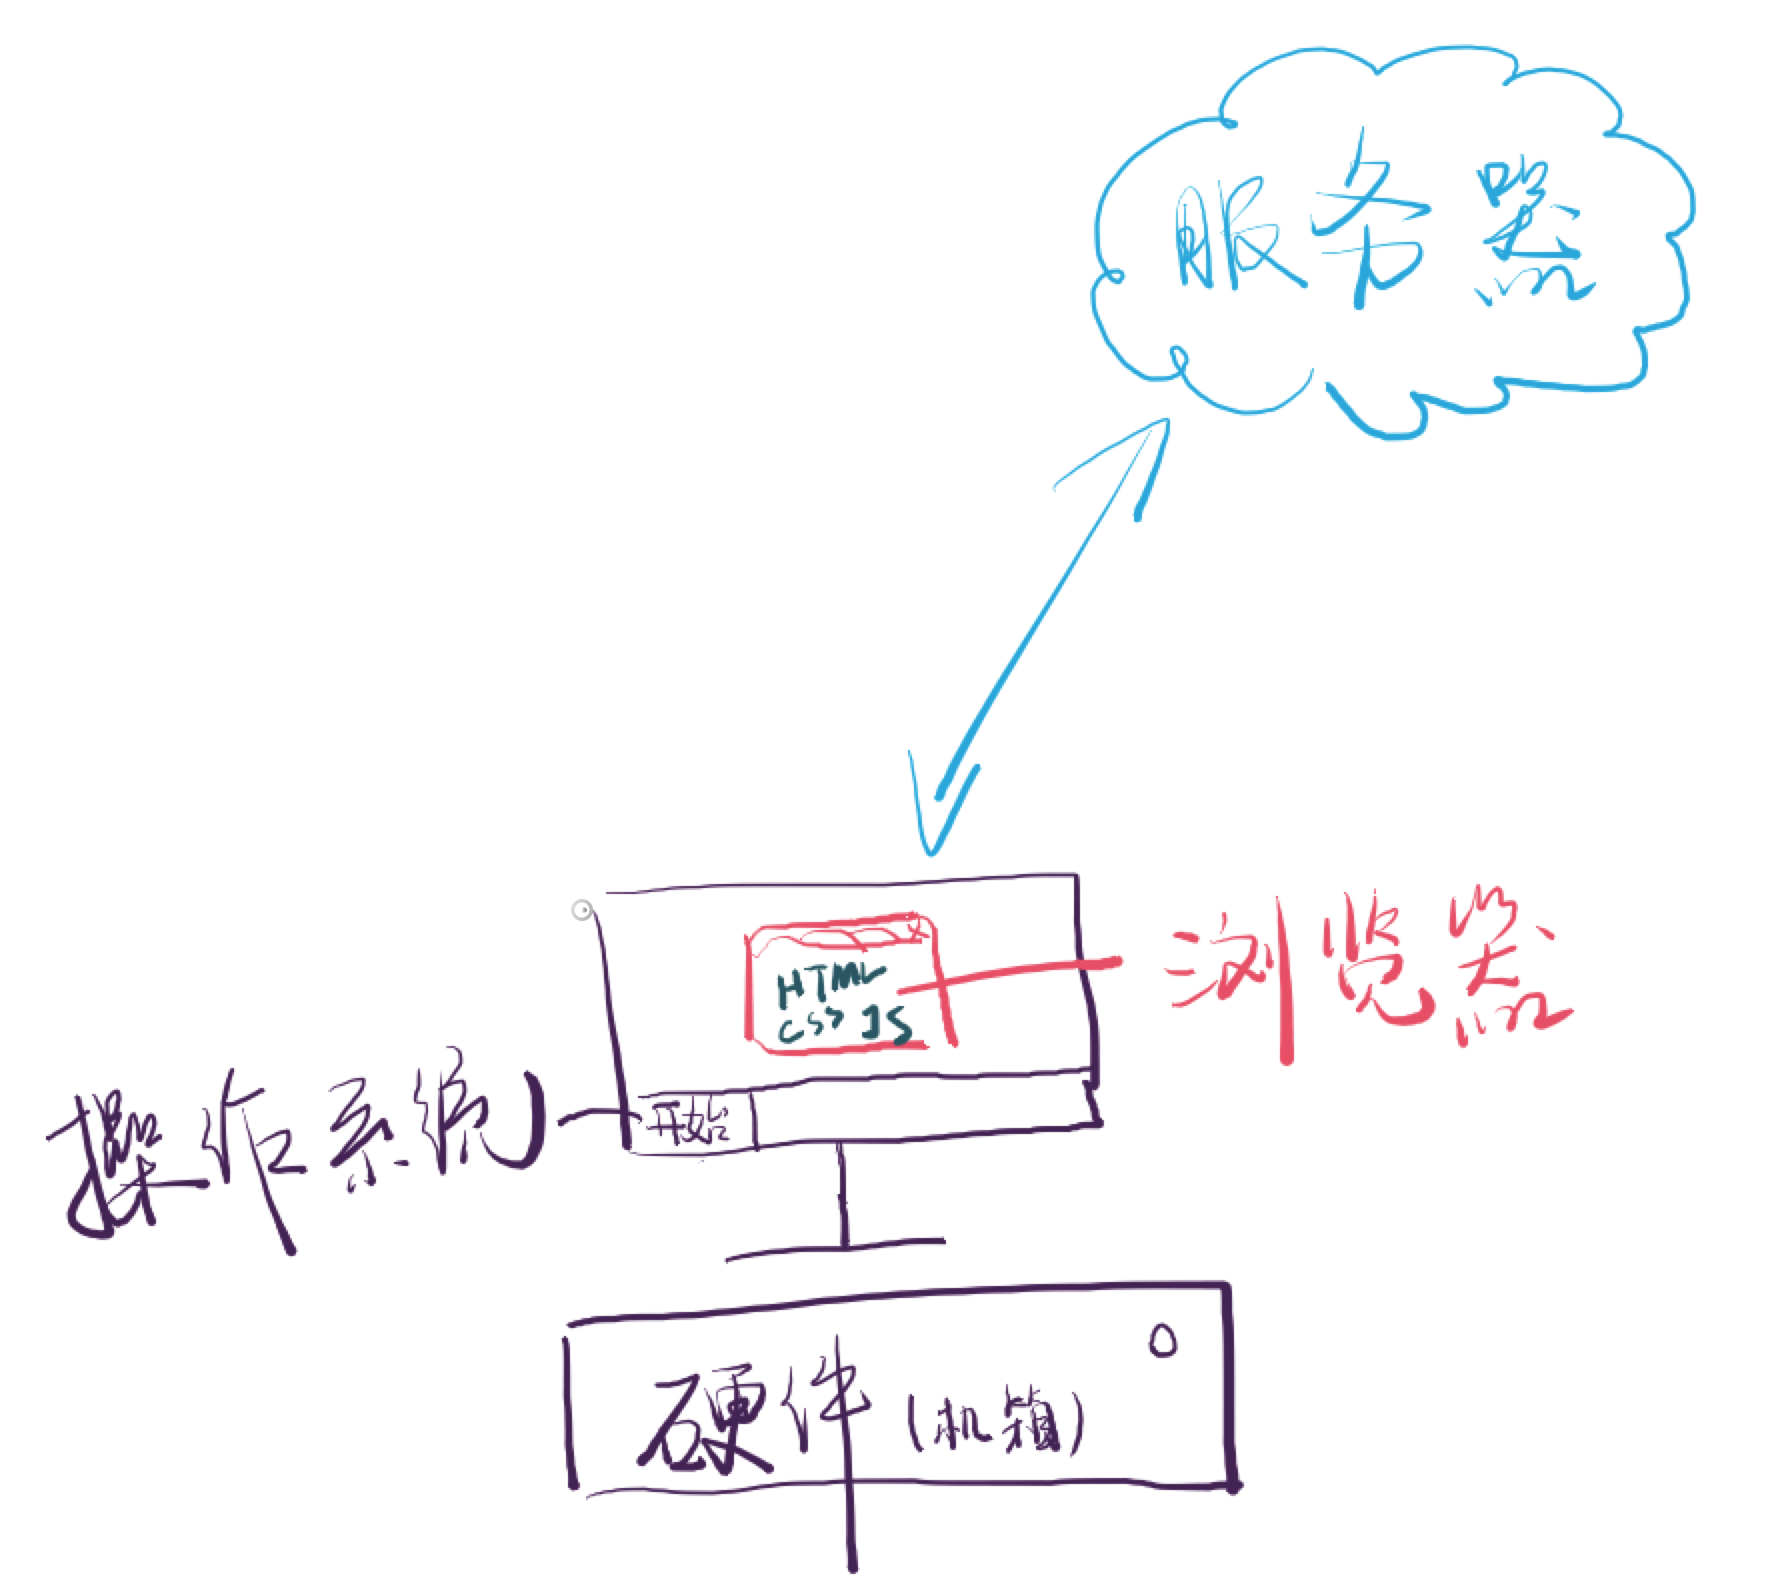 服务器
HTML
CSS JS
浏览器
操作系统
开始
硬件(机箱)